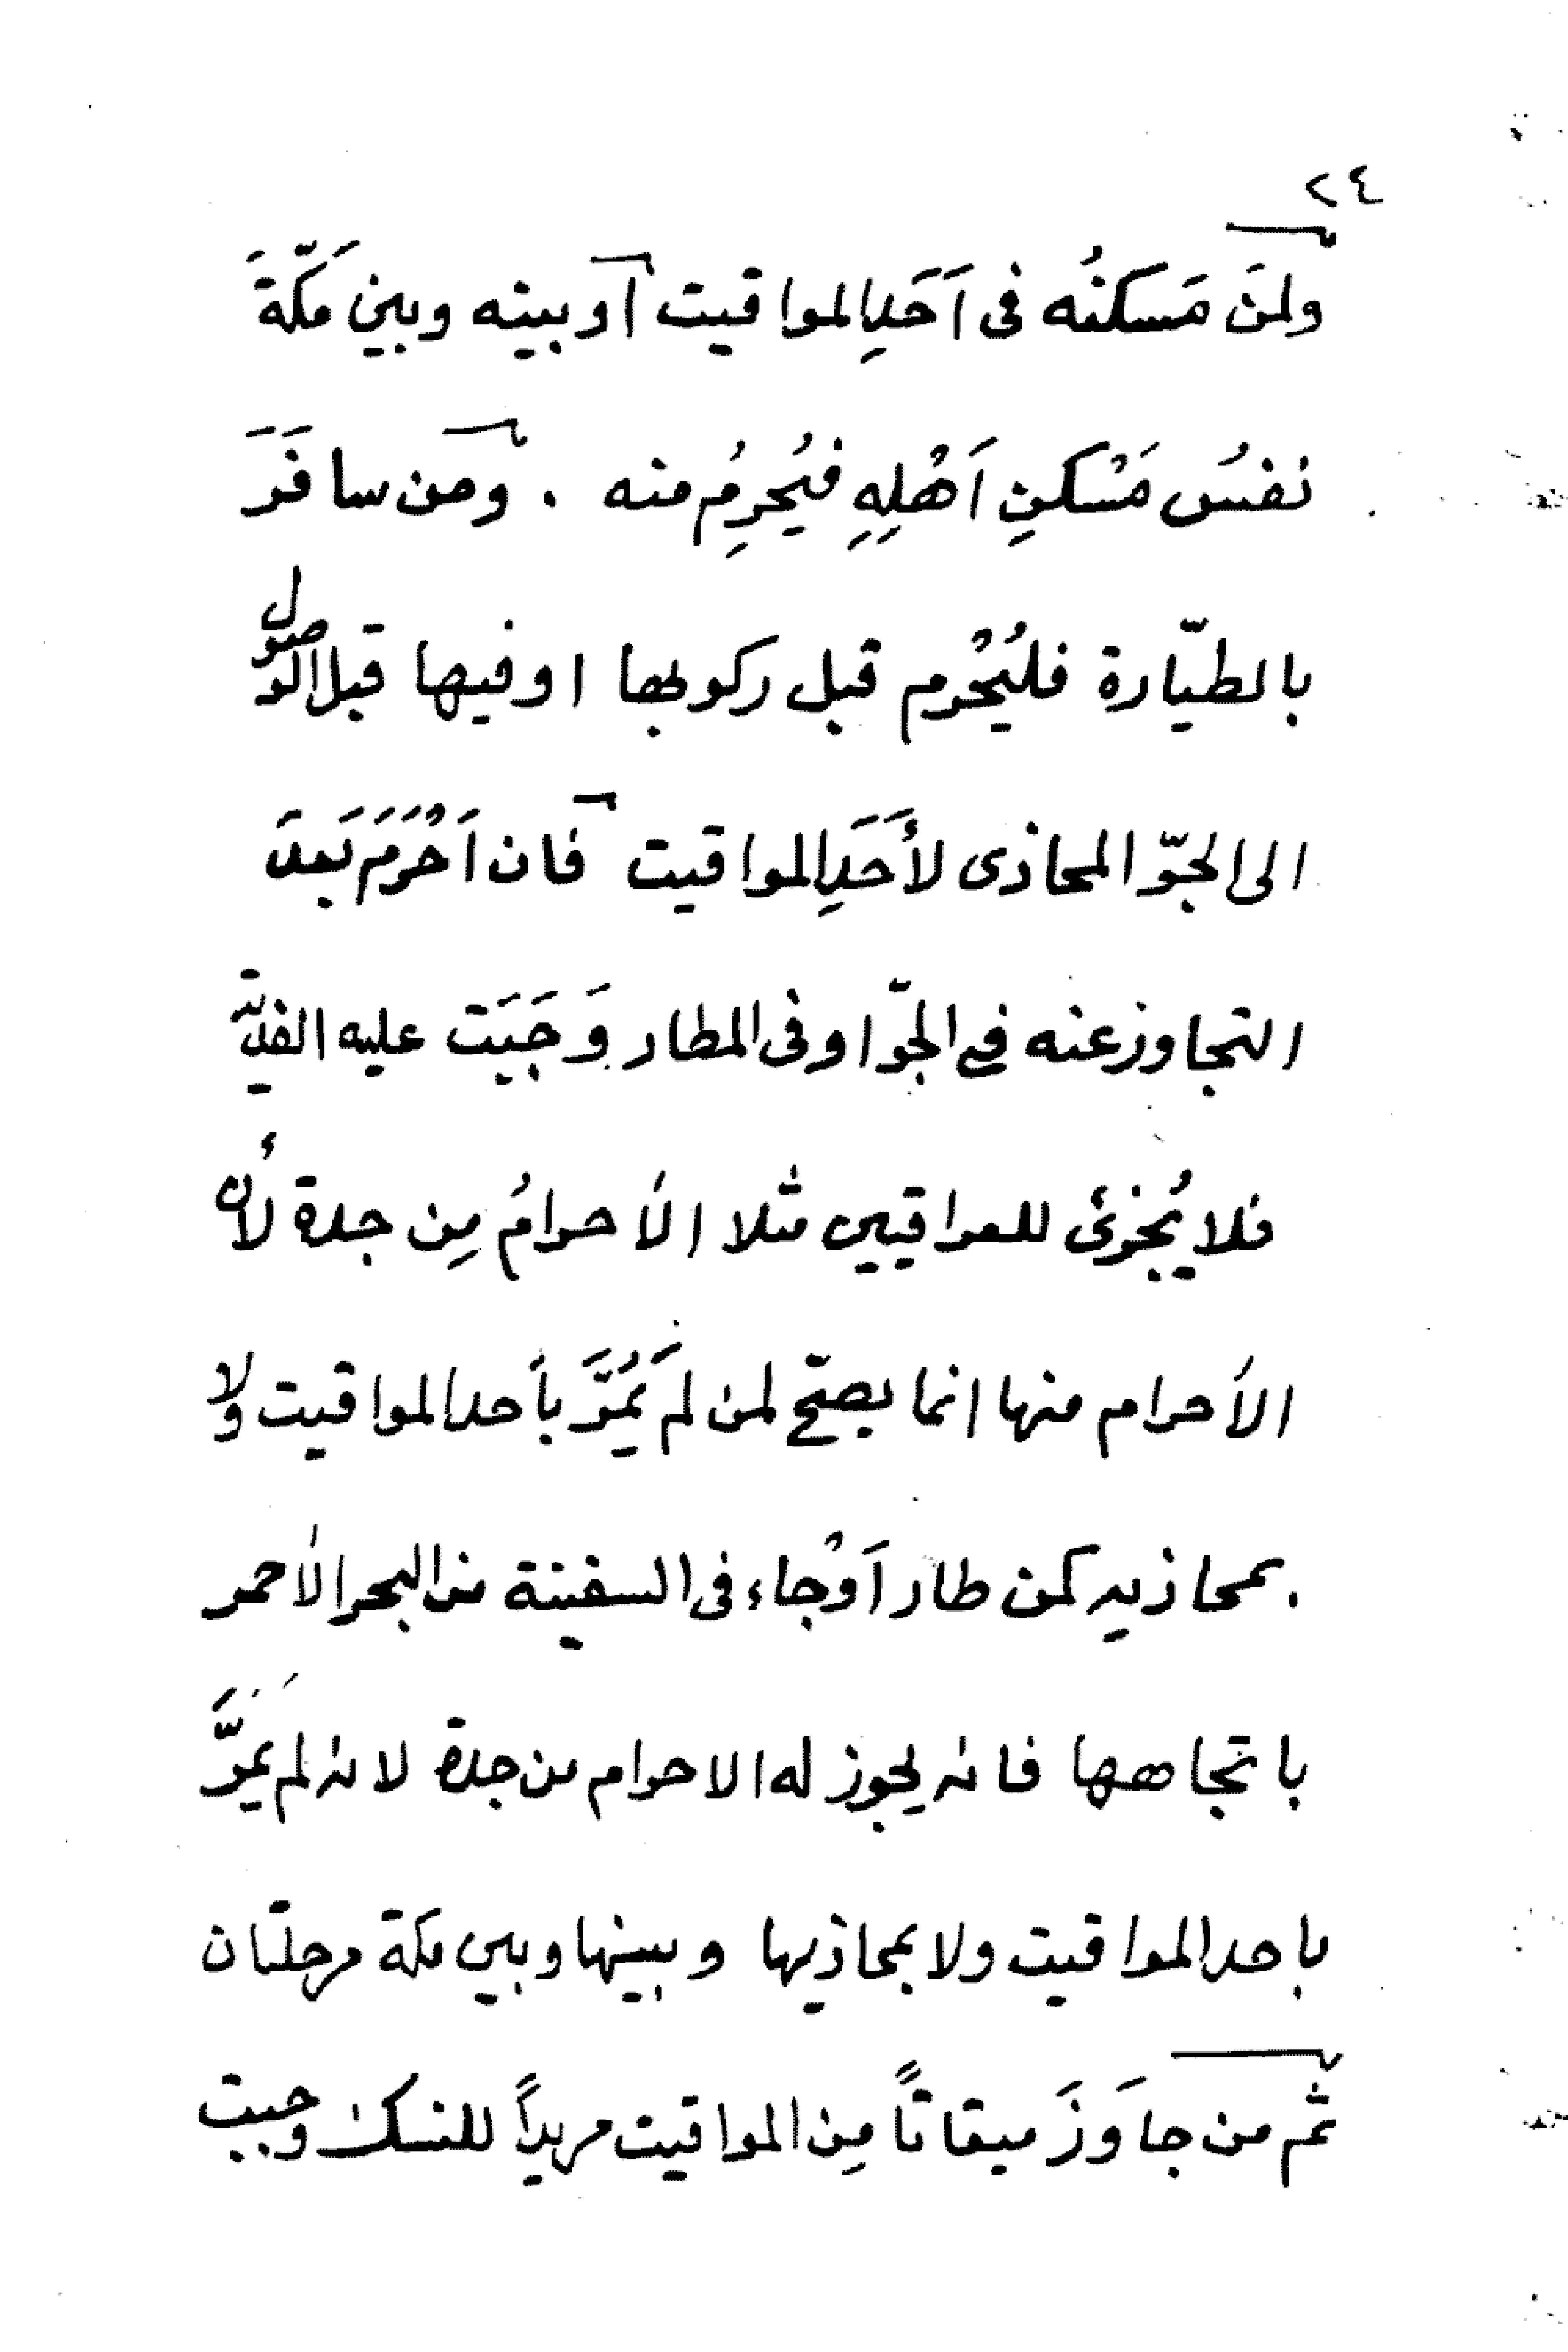 ٢٤
ولمَن مَسكنُه فى اَحَدِ المواقيت اَو بينه وبين مَكّةَ
نفسُ مَسْكنِ اَهْلِهِ فيُحرِمُ منه . ومن سافَرَ
بالطيّارة فليُحْرم قبل ركوبها او فيها قبل الوصول
الى الجوّ المحاذى لأَحَدِ المواقيت فان اَحْرَمَ بَعدَ
التجاوز عنه فى الجوّ او فى المطار وَجَبَت عليه الفدية
فلا يُجْزئ للعراقيين مثلا الأحرامُ مِن جدة لأن
الأحرام منها انما يصحّ لمن لم يَمُرَّ بأحد المواقيت ولا
بمحاذيهِ كمن طار اَوْجاء فى السفينة من البحر الأحمر
باتجاهها فانه يجوز له الاحرام من جدة لانه لم يَمُرَّ
باحد المواقيت ولا بمحاذيها وبينها وبين مكة مرحلتان
ثم من جاوَزَ ميقاتاً مِن المواقيت مريداً للنسك وجبت